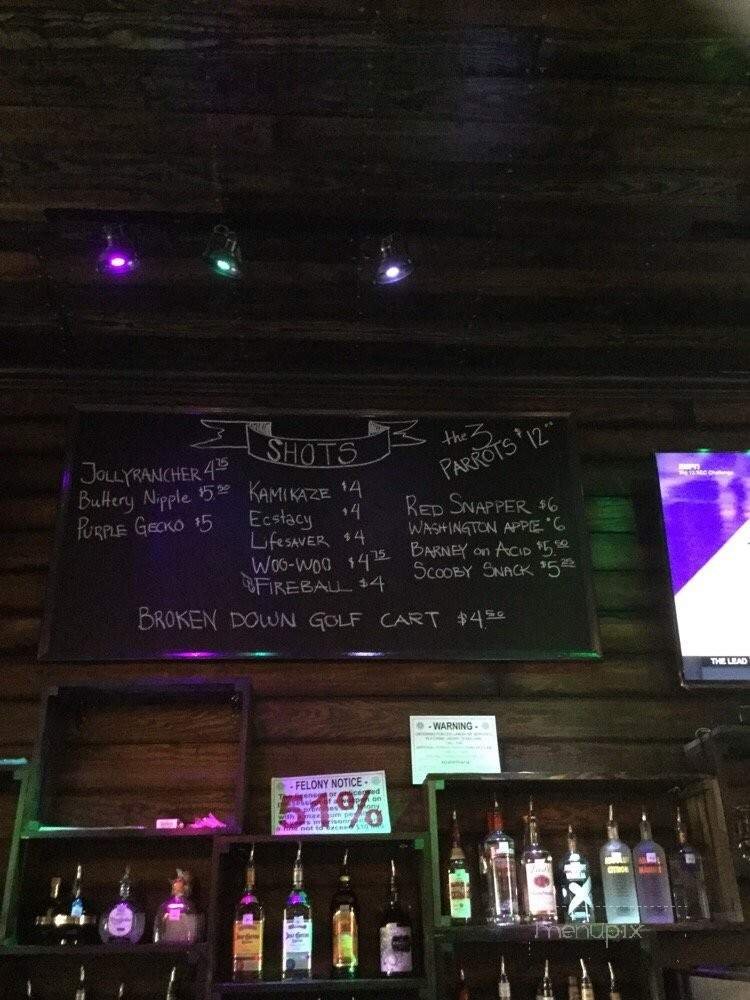 SHOTS
the 3
PARROTS $12.00
JOLLYRANCHER 4.75
Buttery Nipple $5.50
PURPLE GECKO $5
KAMIKAZE $4
Ecstacy $4
LIFESAVER $4
WOO-WOO $4.75
FIREBALL $4
RED SNAPPER $6
WASHINGTON APPLE $6
BARNEY on ACID $5.50
SCOOBY SNACK $5.25
BROKEN DOWN GOLF CART $4.50
ESPN
THE LEAD
- WARNING -
- FELONY NOTICE -
51%
CITRON
menupix